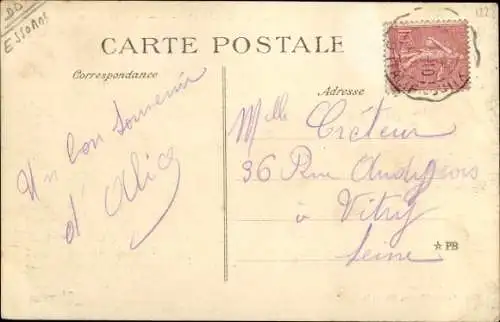 DD
ESSONNE
122
CARTE POSTALE
Correspondance
Adresse
Un bon souvenir
d'Alice
Mlle Créteur
36 Rue
à Vitry
Seine
☆ PB